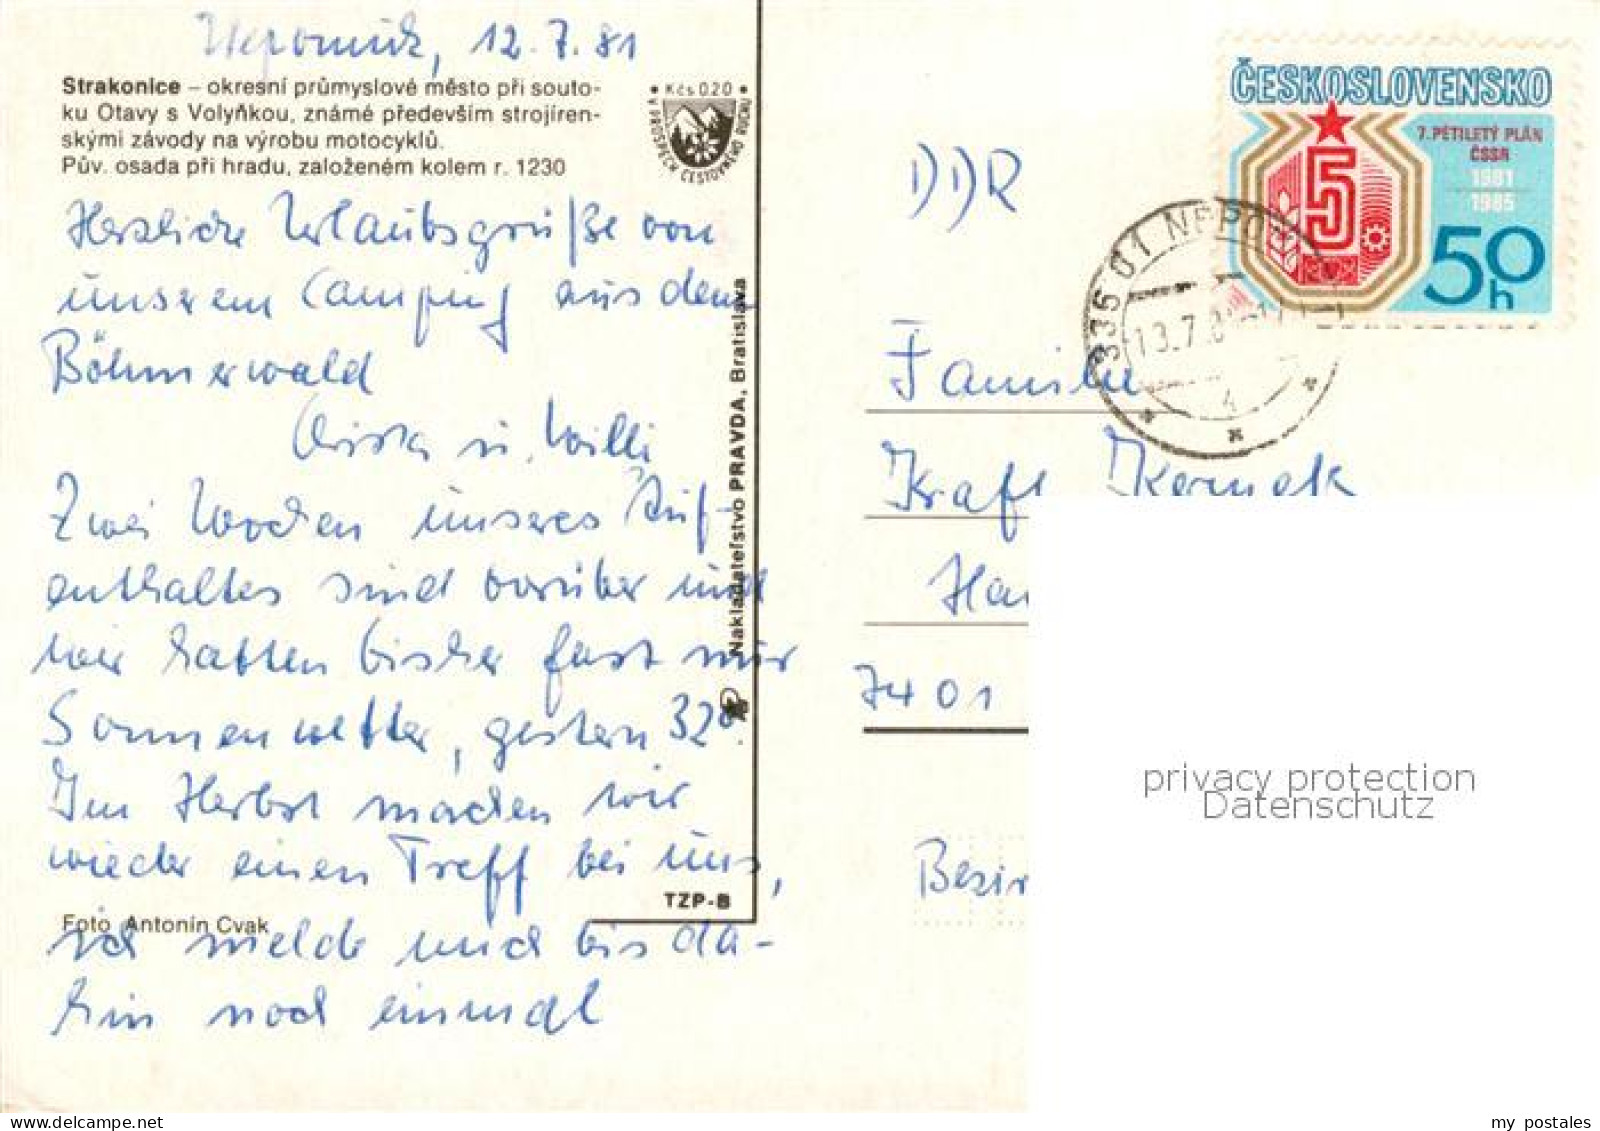 Nepomuk, 12.7.81
Strakonice – okresní průmyslové město při souto-
ku Otavy s Volyňkou, známé především strojíren-
skými závody na výrobu motocyklů.
Pův. osada při hradu, založeném kolem r. 1230
• Kčs 0.20 •
V PROSPĚCH CESTOVNÍHO RUCHU
Herzliche Urlaubsgrüße von
unserem Camping aus dem
Böhmerwald
Christa u. Willi
Zwei Wochen unseres Auf-
enthaltes sind vorüber und
wir hatten bisher fast nur
Sonnenwetter, gestern 32°.
Im Herbst machen wir
wieder einen Treff bei uns,
ich melde mich bis da-
hin noch einmal
Foto Antonín Cvak
TZP-B
Nakladateľstvo PRAVDA, Bratislava
ČESKOSLOVENSKO
7. PĚTILETÝ PLÁN
ČSSR
1981
1985
5
50
h
335 01 NEPO
13.7.8
4
DDR
Familie
Kraft
Ha
7401
Bezir
privacy protection
Datenschutz
my postales